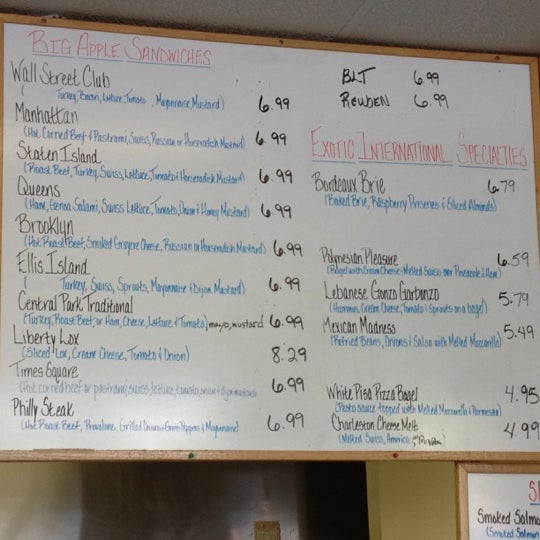 BIG APPLE SANDWICHES
Wall Street Club
( Turkey, Bacon, Lettuce, Tomato, Mayonnaise, Mustard) 6.99
Manhattan
(Hot Corned Beef & Pastrami, Swiss, Russian or Horseradish Mustard) 6.99
Staten Island
(Roast Beef, Turkey, Swiss, Lettuce, Tomato & Horseradish Mustard) 6.99
Queens
(Ham, Genoa Salami, Swiss, Lettuce, Tomato, Onion & Honey Mustard) 6.99
Brooklyn
(Hot Roast Beef, Smoked Gruyere Cheese, Russian or Horseradish Mustard) 6.99
Ellis Island
( Turkey, Swiss, Sprouts, Mayonnaise & Dijon Mustard) 6.99
Central Park Traditional
(Turkey, Roast Beef, or Ham, Cheese, Lettuce & Tomato) mayo, mustard 6.99
Liberty Lox
(Sliced Lox, Cream Cheese, Tomato & Onion) 8.29
Times Square
(Hot corned beef or pastrami, swiss, lettuce, tomato, onion & dijon mustard) 6.99
Philly Steak
(Hot Roast Beef, Provolone, Grilled Onions & Green Peppers & Mayonnaise) 6.99
BLT 6.99
REUBEN 6.99
EXOTIC INTERNATIONAL SPECIALTIES
Bordeaux Brie 6.79
(Baked Brie, Raspberry Preserves & Sliced Almonds)
Polynesian Pleasure 6.59
(Bagel with Cream Cheese & Melted Swiss over Pineapple & Ham)
Lebanese Gonzo Garbonzo 5.79
(Hummus, Cream Cheese, Tomato & Sprouts on a bagel)
Mexican Madness 5.49
(Refried Beans, Onions & Salsa with Melted Mozzarella)
White Pisa Pizza Bagel 4.95
(Pesto sauce topped with Melted Mozzarella & Parmesan)
Charleston Cheese Melt 4.99
(Melted Swiss, America
Smoked Salmo
(Smoked Salmon